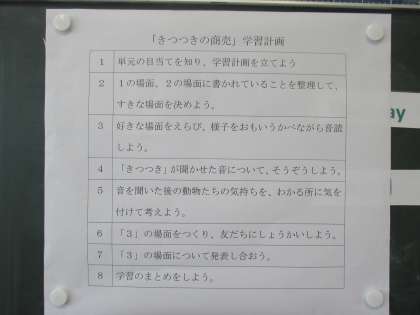 「きつつきの商売」学習計画
1 単元の目当てを知り、学習計画を立てよう
2 1の場面、2の場面に書かれていることを整理して、
すきな場面を決めよう。
3 好きな場面をえらび、様子をおもいうかべながら音読
しよう。
4 「きつつき」が聞かせた音について、そうぞうしよう。
5 音を聞いた後の動物たちの気持ちを、わかる所に気を
付けて考えよう。
6 「3」の場面をつくり、友だちにしょうかいしよう。
7 「3」の場面について発表し合おう。
8 学習のまとめをしよう。
ay